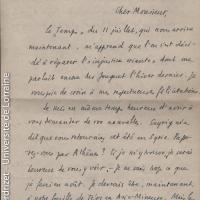 Cher Monsieur,
Le "Temps" du 11 juillet, qui nous arrive
maintenant, m'apprend que l'on s'est déci-
dé à réparer l'injustice criante, dont me
parlait encore Jouguet l'hiver dernier. Je
vous prie de croire à mes respectueuses félicitations.
Je suis en même temps heureux d'avoir à
vous demander de vos nouvelles. Seyrig m'a
dit que vous retourniez cet été en Syrie. Passe-
rez-vous par Athènes ? Si je m'y trouve, je serai
heureux de vous y voir. Je ne sais trop ce que
je ferai en août. Je devrais être, maintenant,
à notre fouille de Téos en Asie-Mineure. Mais le
édirect - Université de Lorraine